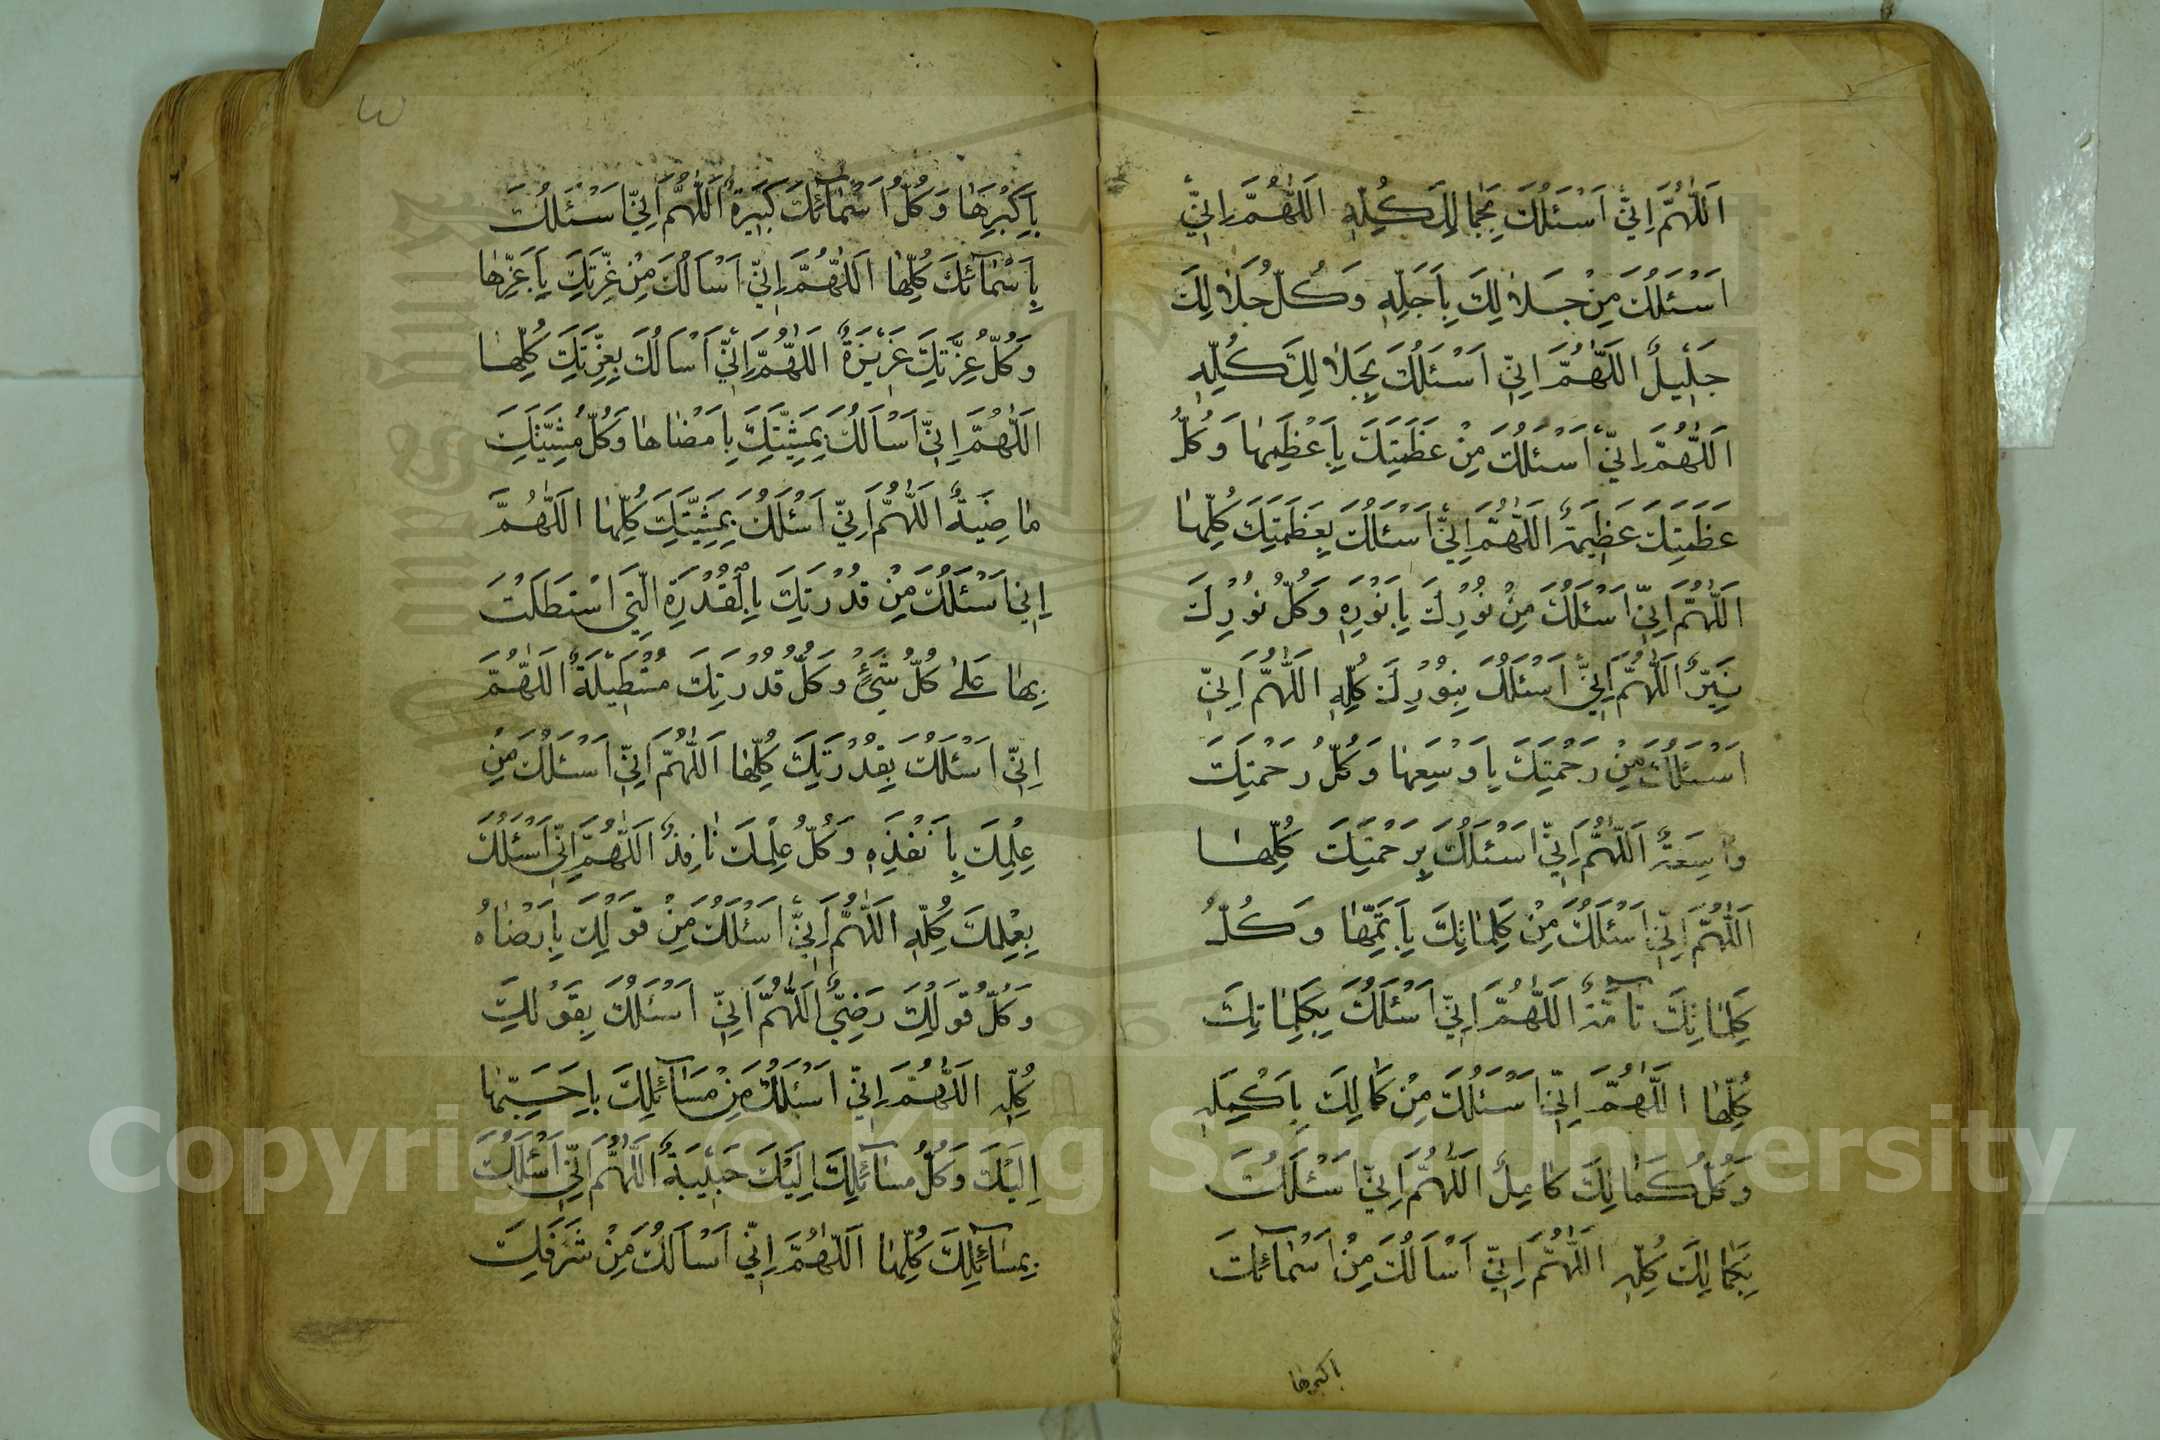 اَللّٰهُمَّ اِنّيِ اَسْئَلُكَ بِجَمالِكَ كُلِّهِ اَللّٰهُمَّ اِنّيِ
اَسْئَلُكَ مِنْ جَلالِكَ بِاَجَلِّهِ وَكُلُّ جَلالِكَ
جَلِيلٌ اَللّٰهُمَّ اِنّيِ اَسْئَلُكَ بِجَلالِكَ كُلِّهِ
اَللّٰهُمَّ اِنّيِ اَسْئَلُكَ مِنْ عَظَمَتِكَ بِاَعْظَمِها وَكُلُّ
عَظَمَتِكَ عَظِيمَةٌ اَللّٰهُمَّ اِنّيِ اَسْئَلُكَ بِعَظَمَتِكَ كُلِّها
اَللّٰهُمَّ اِنّيِ اَسْئَلُكَ مِنْ نُورِكَ بِاَنْوَرِهِ وَكُلُّ نُورِكَ
نَيِّرٌ اَللّٰهُمَّ اِنّيِ اَسْئَلُكَ بِنُورِكَ كُلِّهِ اَللّٰهُمَّ اِنّيِ
اَسْئَلُكَ مِنْ رَحْمَتِكَ بِاَوْسَعِها وَكُلُّ رَحْمَتِكَ
واسِعَةٌ اَللّٰهُمَّ اِنّيِ اَسْئَلُكَ بِرَحْمَتِكَ كُلِّها
اَللّٰهُمَّ اِنّيِ اَسْئَلُكَ مِنْ كَلِماتِكَ بِاَتَمِّها وَكُلُّ
كَلِماتِكَ تآمَّةٌ اَللّٰهُمَّ اِنّيِ اَسْئَلُكَ بِكَلِماتِكَ
كُلِّها اَللّٰهُمَّ اِنّيِ اَسْئَلُكَ مِنْ كَمالِكَ بِاَكْمَلِهِ
وَكُلُّ كَمالِكَ كامِلٌ اَللّٰهُمَّ اِنّيِ اَسْئَلُكَ
بِكَمالِكَ كُلِّهِ اَللّٰهُمَّ اِنّيِ اَسْاَلُكَ مِنْ اَسْمآئِكَ
باكبرها
٣
بِاَكْبَرِها وَكُلُّ اَسْمآئِكَ كَبِيرَةٌ اَللّٰهُمَّ اِنّيِ اَسْئَلُكَ
بِاَسْمآئِكَ كُلِّها اَللّٰهُمَّ اِنّيِ اَسْاَلُكَ مِنْ عِزَّتِكَ بِاَعَزِّها
وَكُلُّ عِزَّتِكَ عَزِيزَةٌ اَللّٰهُمَّ اِنّيِ اَسْاَلُكَ بِعِزَّتِكَ كُلِّها
اَللّٰهُمَّ اِنّيِ اَسْاَلُكَ بِمَشِيَّتِكَ بِاَمْضاها وَكُلُّ مَشِيَّتِكَ
ماضِيَةٌ اَللّٰهُمَّ اِنّيِ اَسْئَلُكَ بِمَشِيَّتِكَ كُلِّها اَللّٰهُمَّ
اِنّيِ اَسْئَلُكَ مِنْ قُدْرَتِكَ بِالْقُدْرَةِ الَّتِي اسْتَطَلْتَ
بِها عَلى كُلِّ شَيْءٍ وَكُلُّ قُدْرَتِكَ مُسْتَطِيلَةٌ اَللّٰهُمَّ
اِنّيِ اَسْئَلُكَ بِقُدْرَتِكَ كُلِّها اَللّٰهُمَّ اِنّيِ اَسْئَلُكَ مِنْ
عِلْمِكَ بِاَنْفَذِهِ وَكُلُّ عِلْمِكَ نافِذٌ اَللّٰهُمَّ اِنّيِ اَسْئَلُكَ
بِعِلْمِكَ كُلِّهِ اَللّٰهُمَّ اِنّيِ اَسْئَلُكَ مِنْ قَوْلِكَ بِاَرْضاهُ
وَكُلُّ قَوْلِكَ رَضِيٌّ اَللّٰهُمَّ اِنّيِ اَسْئَلُكَ بِقَوْلِكَ
كُلِّهِ اَللّٰهُمَّ اِنّيِ اَسْئَلُكَ مِنْ مَسآئِلِكَ بِاَحَبِّها
اِلَيْكَ وَكُلُّ مَسآئِلِكَ اِلَيْكَ حَبِيبَةٌ اَللّٰهُمَّ اِنّيِ اَسْئَلُكَ
بِمَسآئِلِكَ كُلِّها اَللّٰهُمَّ اِنّيِ اَسْاَلُكَ مِنْ شَرَفِكَ
Copyright © King Saud University
1957